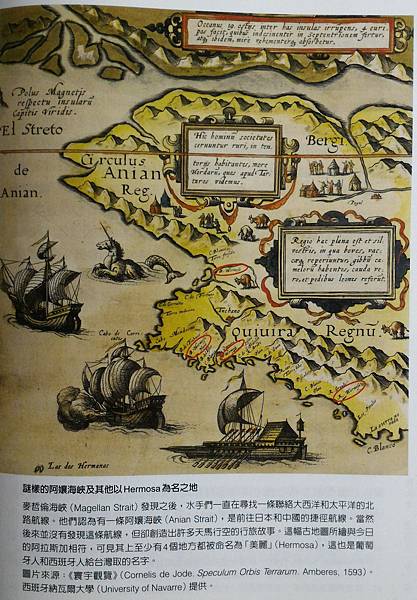 Oceanus 19 ostijs inter has insulas irrumpens, 4 euri-
pos facit, quibus indesinenter in Septentrionem fertur,
atq ibidem, mire vehementerq absorbetur.
Polus Magnetis
respectu insularũ
Capitis Viridis.
El Streto
de
Anian.
Circulus
Anian
Reg.
Hic hominũ societates
cernuntur ruri, in ten-
torijs habitantes, more
Hordarũ, ques apud Tar-
tares videmus.
Bergi
Regio hæc plana est et sil-
vestris, in qua boves, vac-
cæq reperiuntur, gibbũ ca-
melorũ habentes, cauda ve-
ro, et pedibus leones referũt.
Quiuira Regnũ.
Tuchano
Cabo de Corri-
entes
Las dos Hermanos
C. Blanco
謎樣的阿孃海峽及其他以Hermosa為名之地
麥哲倫海峽（Magellan Strait）發現之後，水手們一直在尋找一條聯絡大西洋和太平洋的北
路航線。他們認為有一條阿孃海峽（Anian Strait），是前往日本和中國的捷徑航線。當然
後來並沒有發現這條航線，但卻創造出許多天馬行空的行旅故事。這幅古地圖所繪與今日
的阿拉斯加相符，可見其上至少有4個地方都被命名為「美麗」（Hermosa），這也是葡萄
牙人和西班牙人給台灣取的名字。
圖片來源：《寰宇觀覽》（Cornelis de Jode. Speculum Orbis Terrarum. Amberes, 1593）。
西班牙納瓦爾大學（University of Navarre）提供。